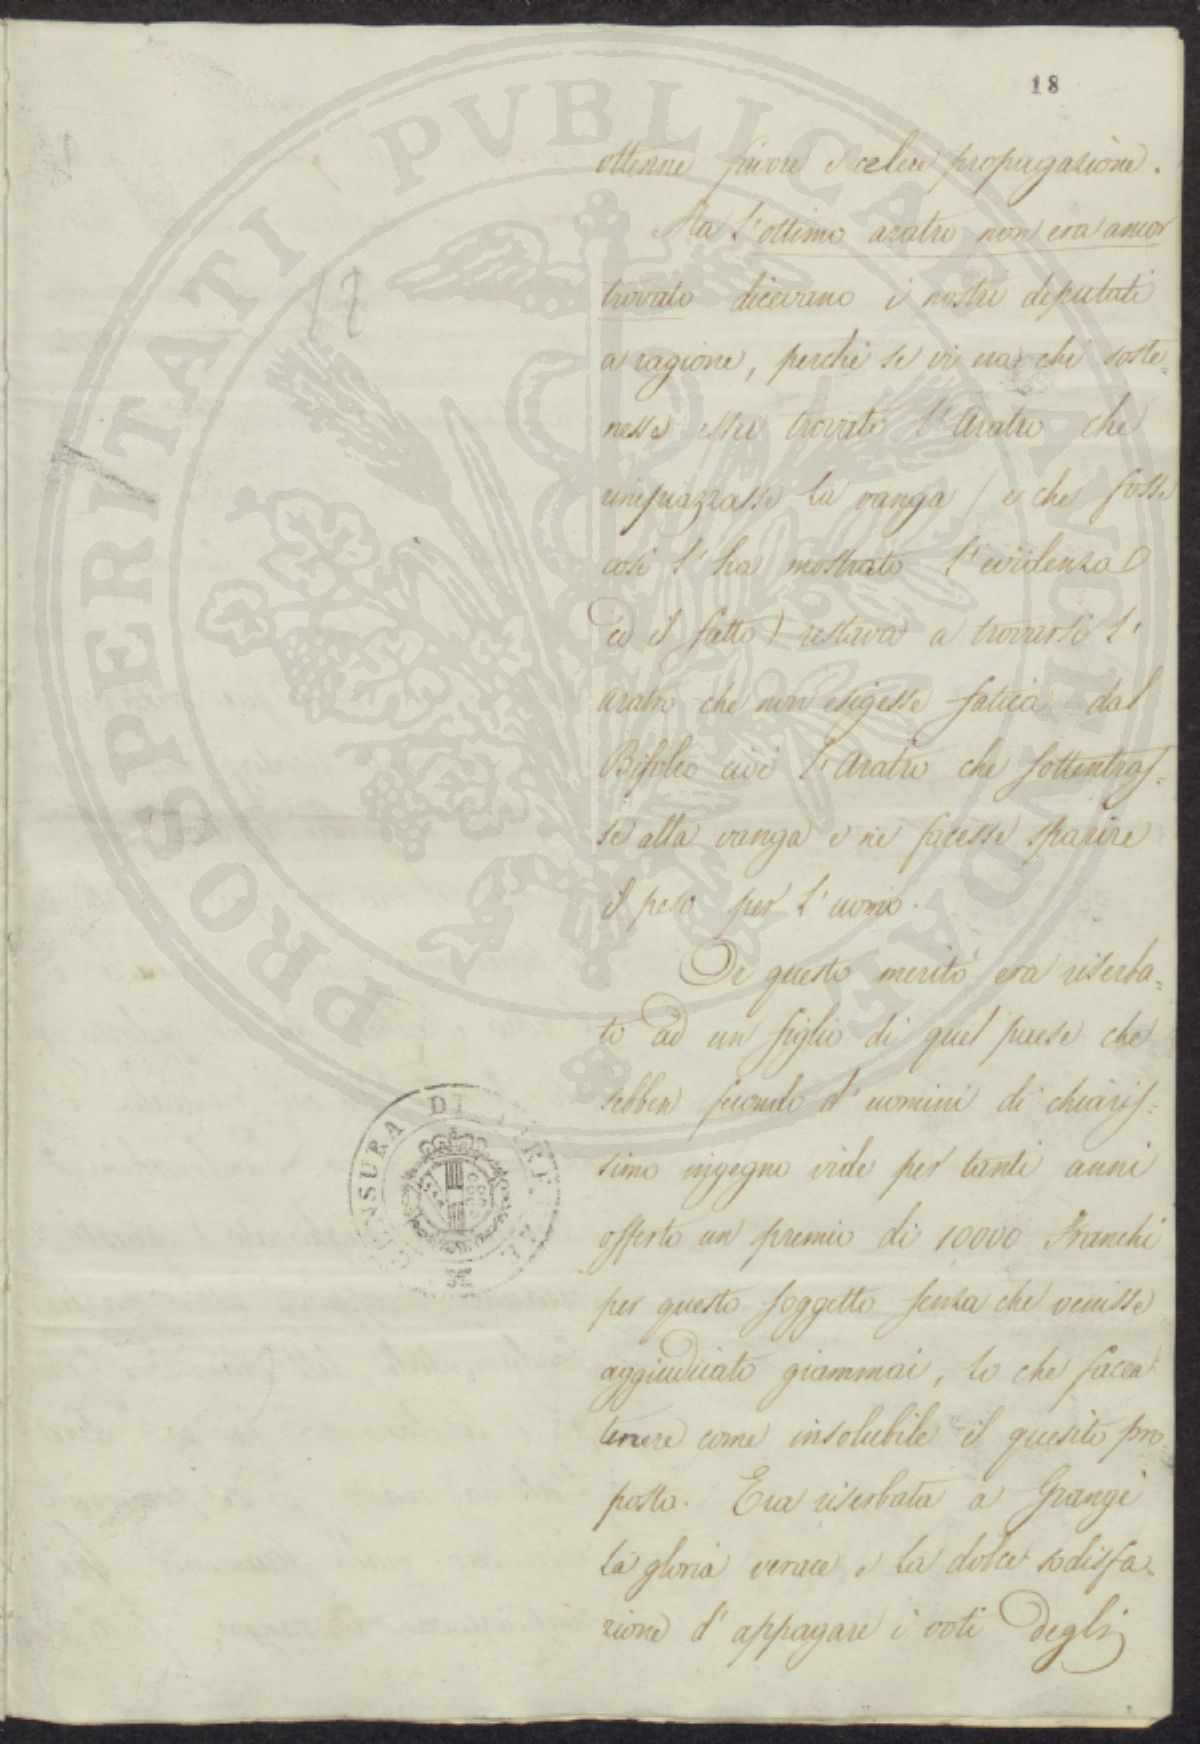 18
ottenne favore e celere propagazione.
Ma l'ottimo aratro non era ancor
trovato dicevano i nostri deputati
a ragione, perchè se vi era chi soste=
nesse esser trovato l'Aratro che
rimpiazzasse la vanga / e che fosse
così l'ha mostrato l'evidenza
ed il fatto / restava a trovarsi l'
aratro che non esigesse fatica dal
Bifolco cioè l'Aratro che sottentras=
se alla vanga e ne facesse sparire
il peso per l'uomo.
Or questo merito era riserba=
to ad un figlio di quel paese che
sebben fecondo d'uomini di chiaris=
simo ingegno vide per tanti anni
offerto un premio di 10000 Franchi
per questo soggetto senza che venisse
aggiudicato giammai, lo che facea
tenere come insolubile il quesito pro=
posto. Era riserbata a Grangè
la gloria verace e la dolce sodisfa=
zione d'appagare i voti degli
18
PROSPERITATI PVBLICAE AVGENDAE
CENSURA DI FIRENZE